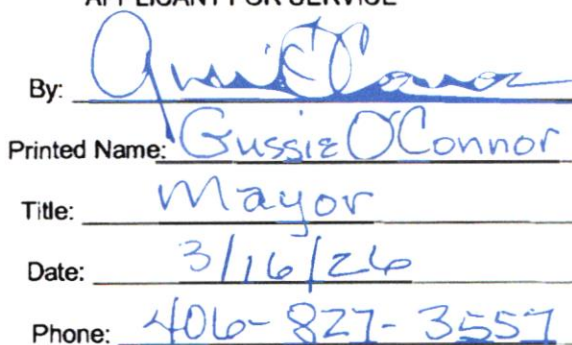 APPLICANT FOR SERVICE
By: Gussie O'Connor
Printed Name: Gussie O'Connor
Title: Mayor
Date: 3/16/26
Phone: 406-827-3557